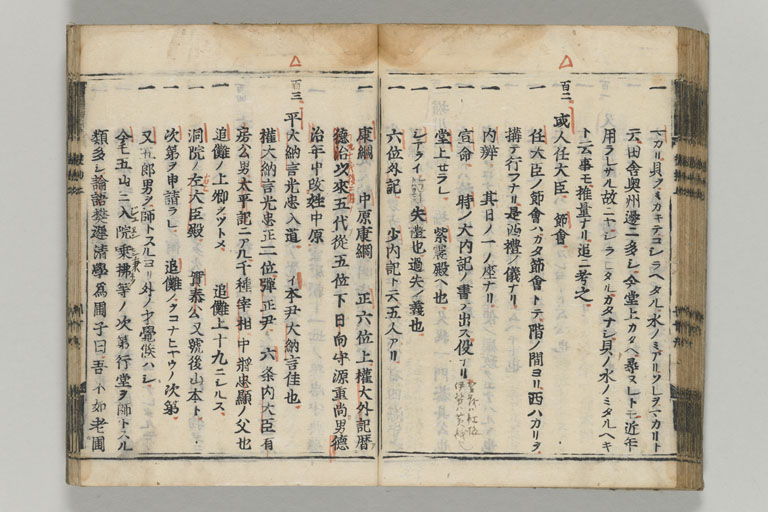 一 マカリ貝ノキノキテコシラヘタル水ノミアリソレヲマカリト
云田舎奥州邊ニ多シ今堂上カタヘ尋ヌレトモ近年
用ラレサル故ニナシラニタルカタナシ貝ノ水ノミタルヘキ
ト云事モ推量ナリ追テ考之
百二
一 或人任大臣ハ節會
一 任大臣ノ節會ハカタ節會トテ階ノ間ヨリ西ハカリヲ
搆テ行フナリ是西禮ノ儀ナリ
一 内辨 其日ノ一ノ座ナリ
一 宣命 時ノ大内記ノ書テ出ス役ナリ
一 堂上セラル 紫震殿ヘ也
一 シテライ 失禮也過失ノ義也
一 六位外記 少内記ト云五人アリ
一 康綱 中原康綱 正六位上權大外記暦
德治以來五代從五位下日向守源重尚男德
治年中改姓中原
百三
一 平大納言光忠入道 イ本尹大納言佳也
權大納言光忠正二位彈正尹六条内大臣有
房公男太平記ニアル千種宰相中將忠顯ノ父也
一 追儺ノ上卿ヲツトメ 追儺上十九ニシルス
一 洞院ノ右大臣殿 實泰公又號後山本ト
一 次第ヲ申請ラレ 追儺ノヲコナヒヤウノ次第
一 又五郎男ヲ師トスルヨリ外ノ才覺候ハシ
今モ五山ニ入院乗拂等ノ次第行堂ヲ師トスル
類多シ論語樊遲請學爲圃子曰吾不如老圃